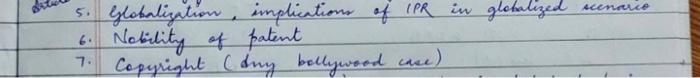 5. Globalization, implications of IPR in globalized scenario
6. Nobility of patent
7. Copyright (any bollywood case)